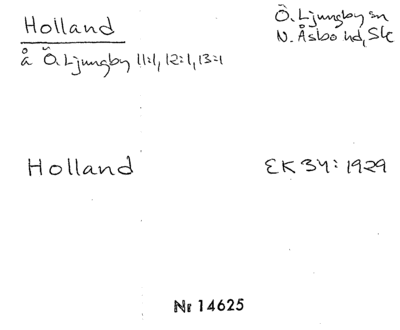 Holland
Ö. Ljungby sn
N. Åsbo hd, Sk
å Ö. Ljungby 11:1, 12:1, 13:1
Holland
EK 34: 1929
Nr 14625